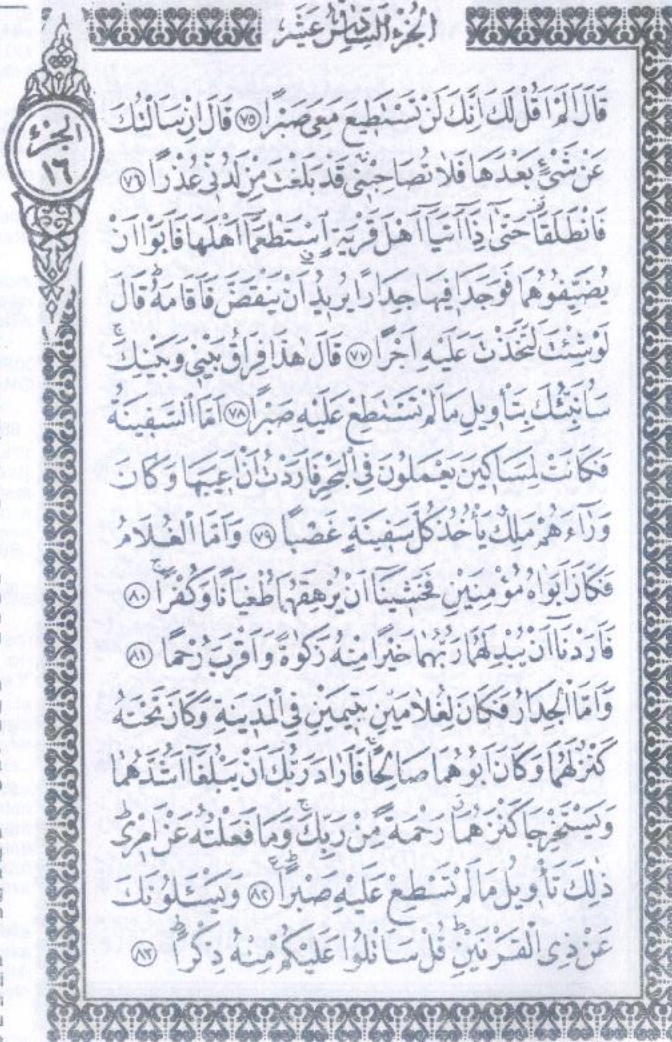 الجزء السادس عشر
الجزء
١٦
قَالَ اَلَمْ اَقُلْ لَكَ اِنَّكَ لَنْ تَسْتَطٖيعَ مَعِىَ صَبْرًا ﴿٧٥﴾ قَالَ اِنْ سَاَلْتُكَ
عَنْ شَىْءٍ بَعْدَهَا فَلَا تُصَاحِبْنٖى قَدْ بَلَغْتَ مِنْ لَدُنّٖى عُذْرًا ﴿٧٦﴾
فَانْطَلَقَا حَتّٰٓى اِذَٓا اَتَيَٓا اَهْلَ قَرْيَةٍ اِسْتَطْعَمَٓا اَهْلَهَا فَاَبَوْا اَنْ
يُضَيِّفُوهُمَا فَوَجَدَا فٖيهَا جِدَارًا يُرٖيدُ اَنْ يَنْقَضَّ فَاَقَامَهُ قَالَ
لَوْ شِئْتَ لَتَّخَذْتَ عَلَيْهِ اَجْرًا ﴿٧٧﴾ قَالَ هٰذَا فِرَاقُ بَيْنٖى وَبَيْنِكَ
سَاُنَبِّئُكَ بِتَاْوٖيلِ مَا لَمْ تَسْتَطِعْ عَلَيْهِ صَبْرًا ﴿٧٨﴾ اَمَّا السَّفٖينَةُ
فَكَانَتْ لِمَسَاكٖينَ يَعْمَلُونَ فِى الْبَحْرِ فَاَرَدْتُ اَنْ اَعٖيبَهَا وَكَانَ
وَرَٓاءَهُمْ مَلِكٌ يَاْخُذُ كُلَّ سَفٖينَةٍ غَصْبًا ﴿٧٩﴾ وَاَمَّا الْغُلَامُ
فَكَانَ اَبَوَاهُ مُؤْمِنَيْنِ فَخَشٖينَٓا اَنْ يُرْهِقَهُمَا طُغْيَانًا وَكُفْرًا ﴿٨٠﴾
فَاَرَدْنَٓا اَنْ يُبْدِلَهُمَا رَبُّهُمَا خَيْرًا مِنْهُ زَكٰوةً وَاَقْرَبَ رُحْمًا ﴿٨١﴾
وَاَمَّا الْجِدَارُ فَكَانَ لِغُلَامَيْنِ يَتٖيمَيْنِ فِى الْمَدٖينَةِ وَكَانَ تَحْتَهُ
كَنْزٌ لَهُمَا وَكَانَ اَبُوهُمَا صَالِحًا فَاَرَادَ رَبُّكَ اَنْ يَبْلُغَٓا اَشُدَّهُمَا
وَيَسْتَخْرِجَا كَنْزَهُمَا رَحْمَةً مِنْ رَبِّكَ وَمَا فَعَلْتُهُ عَنْ اَمْرٖى
ذٰلِكَ تَاْوٖيلُ مَا لَمْ تَسْطِعْ عَلَيْهِ صَبْرًا ﴿٨٢﴾ وَيَسْـَٔلُونَكَ
عَنْ ذِى الْقَرْنَيْنِ قُلْ سَاَتْلُوا عَلَيْكُمْ مِنْهُ ذِكْرًا ﴿٨٣﴾